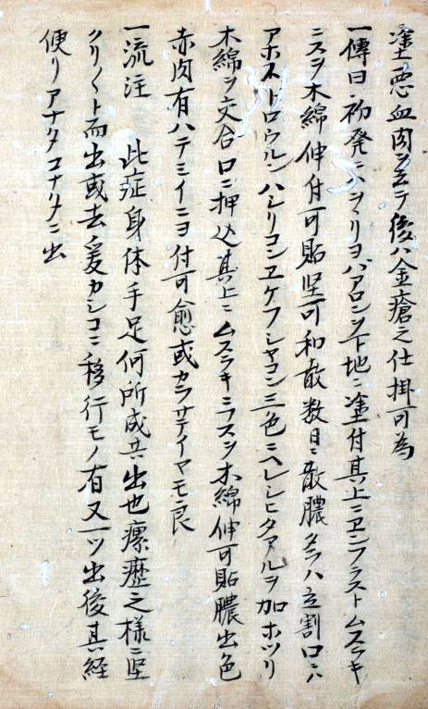 塗悪血肉シミテ後ハ金瘡之仕掛可為
一傳曰初発ニハヲリヨバアロシヲ下地ニ塗付其上ニヱンフラストムスラキ
ニスヲ木綿伸付可貼坚可和散数日ニ散膿タラハ立割口ニハ
アホストロウルンハシリコンヱケフシヤコン三色ニヘレシヒタアルヲ加ホツリ
木綿ヲ交合口ニ押込其上ニムスラキニラスヲ木綿伸可貼膿出色
赤肉有ハテミイニヨ付可愈或カラサテイヤモ良
一流注 此症身体手足何所成共出也瘰癧之様ニ坚
クリ〱ト而出或去ノ爰カシコニ移行モノ有又一ツ出後其経
便リアナタコナタニ出